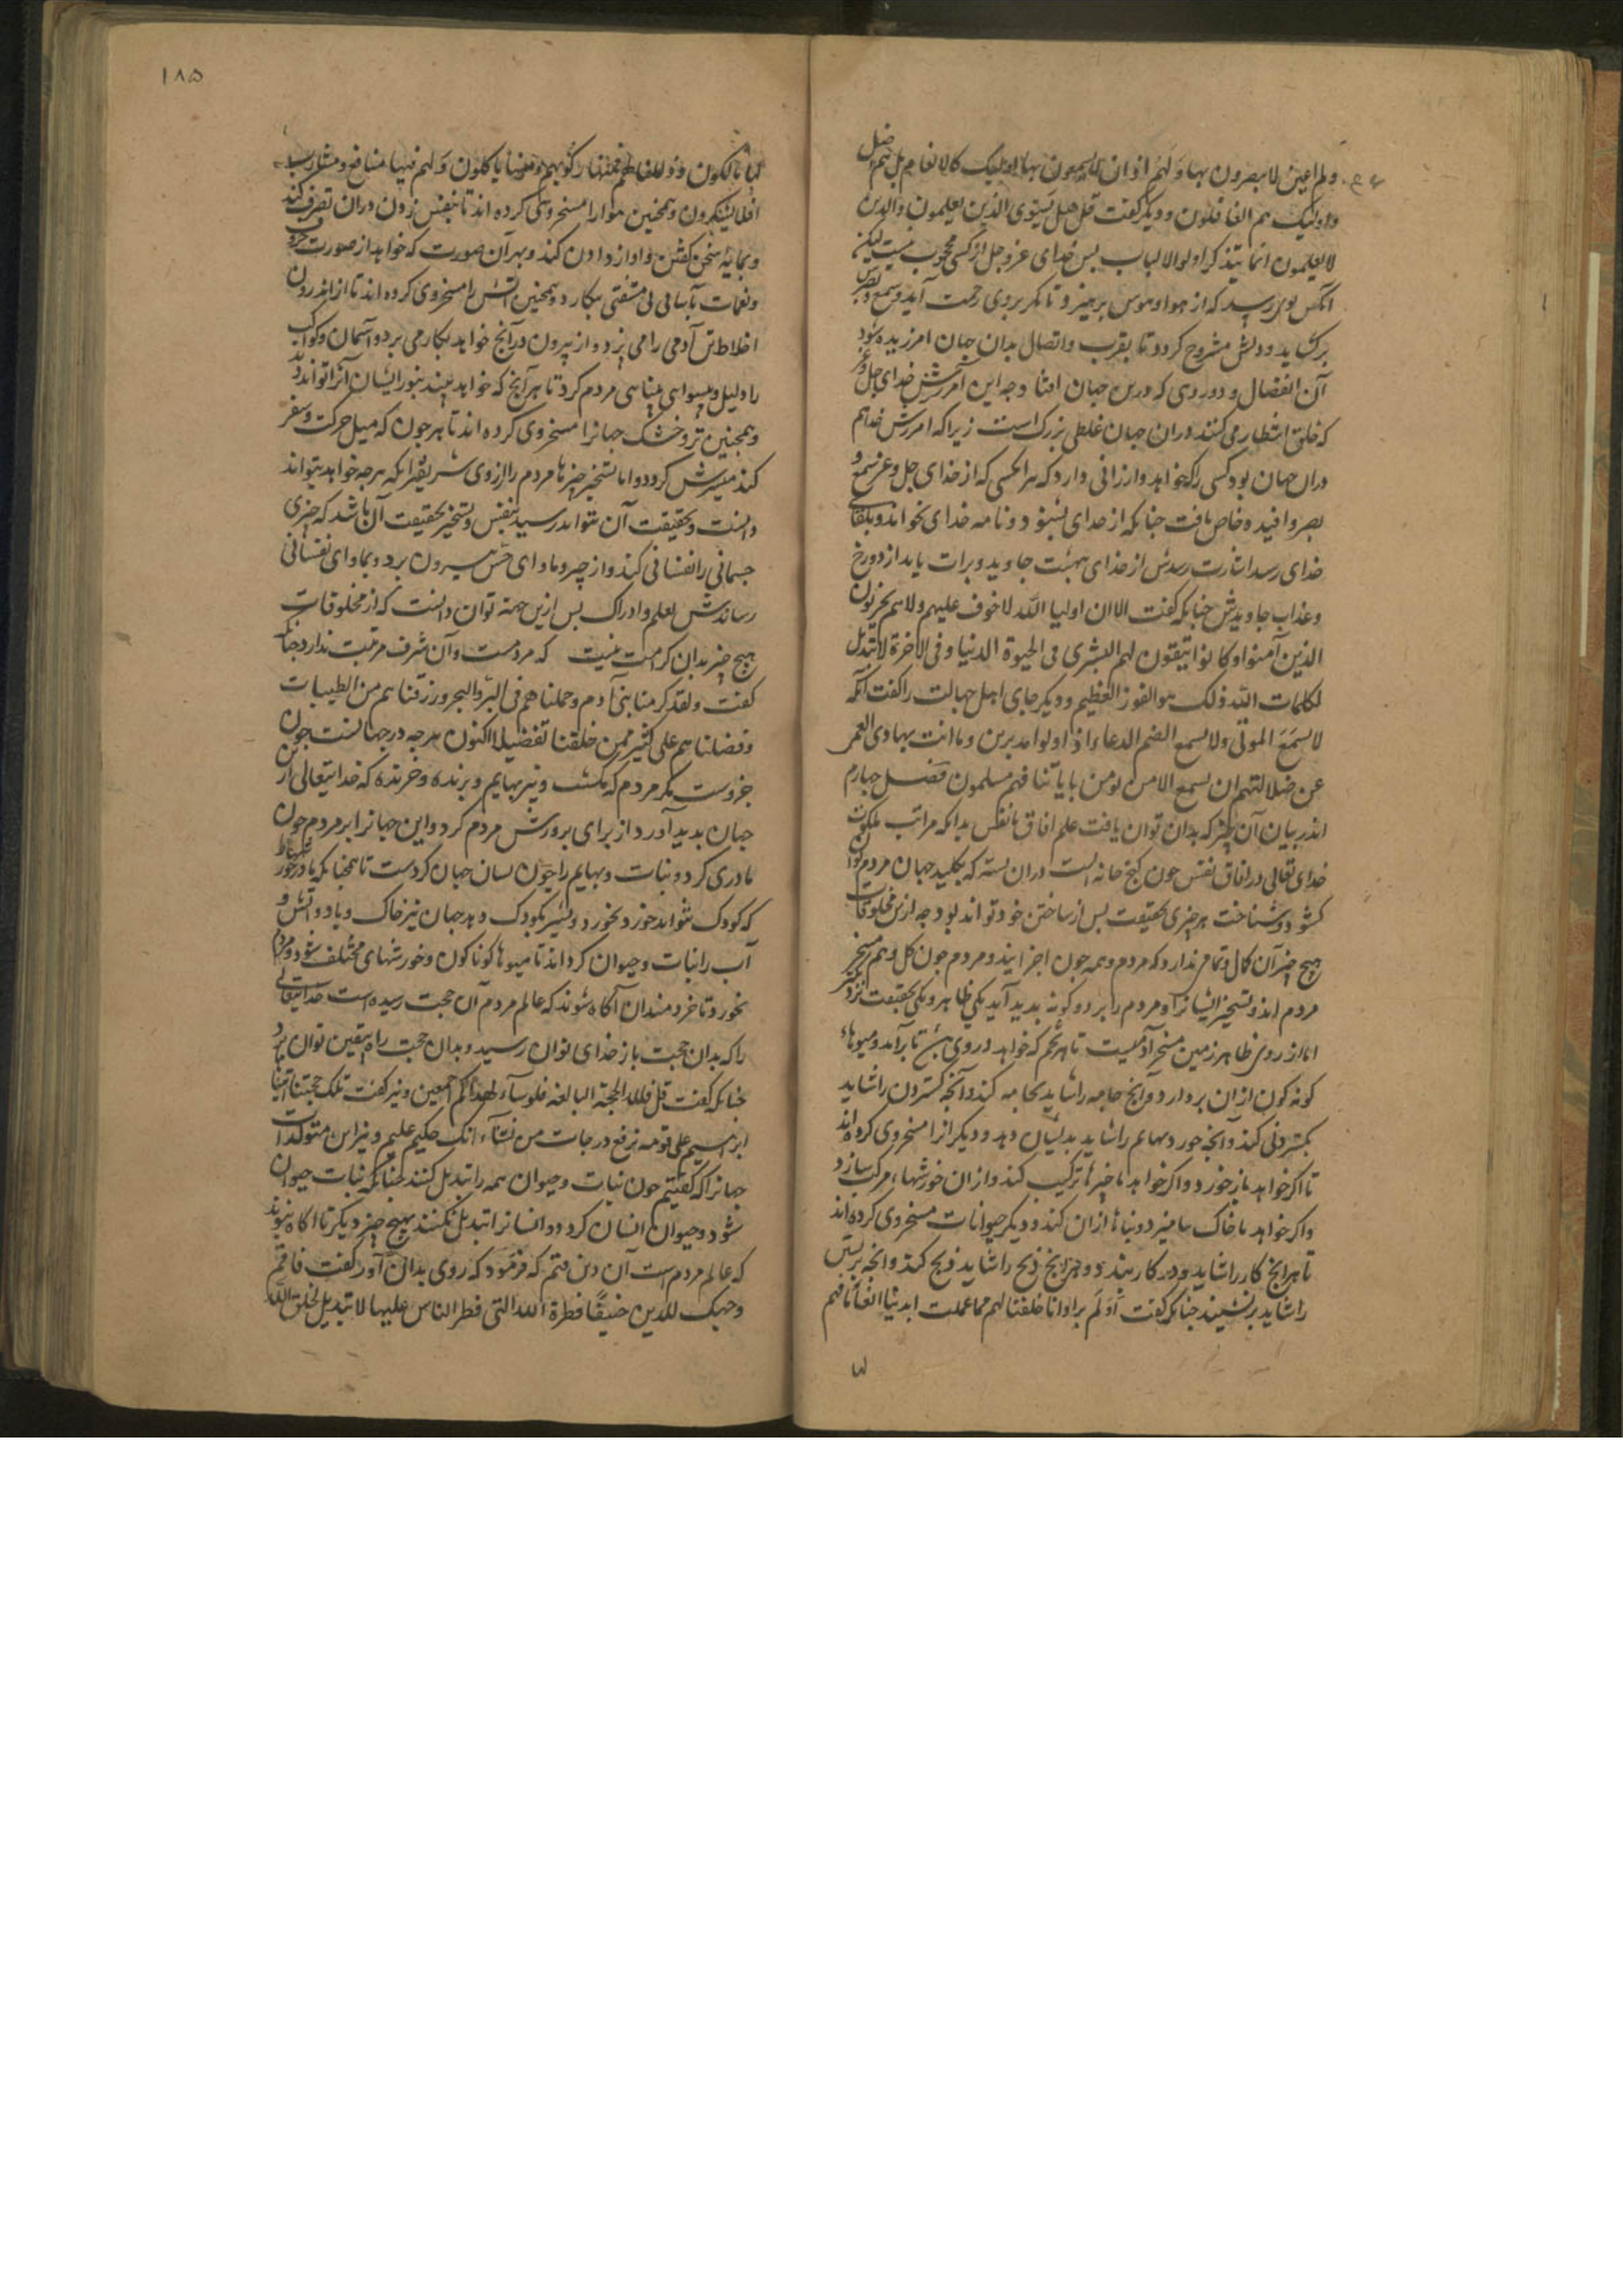 ولهم اعین لا یبصرون بها ولهم اذان لا یسمعون بها اولیک کالانعام بل هم اضل
واولیک هم الغافلون ودیکر کفت قل هل یستوی الذین یعلمون والذین
لا یعلمون انما یتذکر اولوالالباب بس خدای عزوجل از کسی محجوب نیست لیکن
انکس بوی رسد که از هوا وهوس برهیزد تا مکر بروی رحمت آید وسمع وبصرش
برکشاید ودلش مشروح کردد تا بقرب واتصال بدان جهان امرزیده شود
آن انفصال ودوری که درین جهان افتاد وجه این آمرزش خدای جل وعز
که خلق انتظار می کنند دران جهان غلطی بزرک است زیرا که امرزش خدا هم
دران جهان بود کسی را که خواهد وارزانی دارد که هرانکسی که از خدای جل وعز سمع و
بصر وافیده خاص یافت جنانکه از خدای بشنود ونامه خدای بخواند وبلقای
خدای رسد اشارت رسدش از خدای ببهشت جاوید وبرات یابد از دوزخ
وعذاب جاویدش جنانکه کفت الا ان اولیا الله لا خوف علیهم ولا هم یحزنون
الذین آمنوا وکانوا یتقون لهم البشری فی الحیوة الدنیا وفی الاخرة لا تبدیل
لکلمات الله ذلک هو الفوز العظیم ودیکر جای اهل جهالت را کفت انک
لا تسمع الموتی ولا تسمع الصم الدعاء اذا ولوا مدبرین وما انت بهادی العمی
عن ضلالتهم ان تسمع الا من یومن بایاتنا فهم مسلمون فصل جهارم
اندر بیان آن که بدان توان یافت علم افاق وانفس بدانکه مراتب ملکوت
خدای تعالی در افاق نفس جون کنج خانه است دران بسته که بکلید جهان مردم توان
کشود وشناخت هر جیزی بحقیقت بس از ساختن خود تواند بود جه از مخلوقات
هیج جیز آن کمال وتمامی ندارد که مردم وهمه جون اجزا اند ومردم جون کل وهم مسخر
مردم اند وتسخیر ایشانرا ومردم را بر دو کونه بدید آید یکی ظاهر ویکی بحقیقت
اما از روی ظاهر زمین مسخر آدمیست تا هر تخم که خواهد در وی تا برآید ومیوهاء
کونه کون ازان بردارد وآنچ جامه را شاید بجامه کند وآنجه کستردن را شاید
بکستردنی کند وآنجه خورد بهایم را شاید بدیشان دهد ودیکر انرا مسخر وی کرده اند
تا اکر خواهد باز خورد واکر خواهد با جیزها ترکیب کند وازان خورشهاء مرکب سازد
واکر خواهد با خاک بیامیزد وبناها ازان کند ودیکر حیوانات مسخر وی کرده اند
تا هر آنچ کار را شاید در کار بندد وهر آنچ ذبح را شاید ذبح کند وانجه برنشستن
را شاید برنشیند جنانکه کفت أولم یروا انا خلقنا لهم مما عملت ایدینا انعاما فهم
لها
۱۸۵
لها مالکون وذللناها لهم فمنها رکوبهم ومنها یاکلون ولهم فیها منافع ومشارب
افلا یشکرون وهمچنین هوا را مسخر وی کرده اند تا بنفس زدن دران تصرف کند
وبمایه سخن کفتن واواز دادن کند وبهر آن صورت که خواهد از صورت حروف
ونغمات بآسانی بی مشقتی بکار دارد وهمچنین آتش را مسخر وی کرده اند تا از اندرون
اخلاط تن آدمی را می بزد واز بیرون در آنچ خواهد بکار می برد وآسمان وکواکب
را دلیل وبیشوای بینایی مردم کرد تا هر آنچ که خواهد بیند بنور ایشان آنرا تواند دید
وهمچنین تر وخشک جهانرا مسخر وی کرده اند تا هر جون که میل حرکت وسفر
کند میسرش کردد واما تسخیر جیزها مردم را از روی شریفتر آنکه هرجه خواهد بتواند
دانست وبحقیقت آن بتواند رسید بنفس وتسخیر بحقیقت آن باشد که جیزی
جسمانی را نفسانی کند واز جیز وماوای حس بیرون برد وبماوای نفسانی
رساندش بعلم وادراک بس ازین جهة توان دانست که از مخلوقات
هیج جیز بدان کرامت نیست که مردمست وآن شرف ومرتبت ندارد جنانکه
کفت ولقد کرمنا بنی آدم وحملناهم فی البر والبحر ورزقناهم من الطیبات
وفضلناهم علی کثیر ممن خلقنا تفضیلا اکنون هرجه در جهانست جون
جزوست مکر مردم که کلست ونیز بهایم وبرنده وخزنده که خدایتعالی از
جهان بدید آورد از برای برورش مردم کرد واین جهانرا بر مردم جون
مادری کرد ونبات وبهایم را جون لسان جهان کردست تا همجنانکه مادر خورد
که کودک نتواند خورد بخورد وبشیر بکودک دهد جهان نیز خاک وباد واتش و
آب را نبات وحیوان کرداند تا میوها کوناکون وخورشهای مختلف شود ومردم
بخورد وتا خردمندان آکاه شوند که عالم مردم آن حجت رسیده است خدایتعالی
را که بدان حجت باز خدای توان رسید وبدان حجت راه یقین توان برد
جنانکه کفت قل فلله الحجة البالغة فلو شاء لهدیکم اجمعین ونیز کفت تلک حجتنا اتیناها
ابراهیم علی قومه نرفع درجات من نشاء انک حکیم علیم ونیز این متولدات
جهانرا که کفتیم جون نبات وحیوان همه را تبدیل کنند جنانکه نبات حیوان
شود وحیوان انسان کردد وانسانرا تبدیل نکنند بهیج جیز دیکر تا اکاه شوند
که عالم مردم است آن دین قیم که فرمود که روی بدان آور کفت فاقم
وجهک للدین حنیفًا فطرة الله التی فطر الناس علیها لا تبدیل لخلق الله